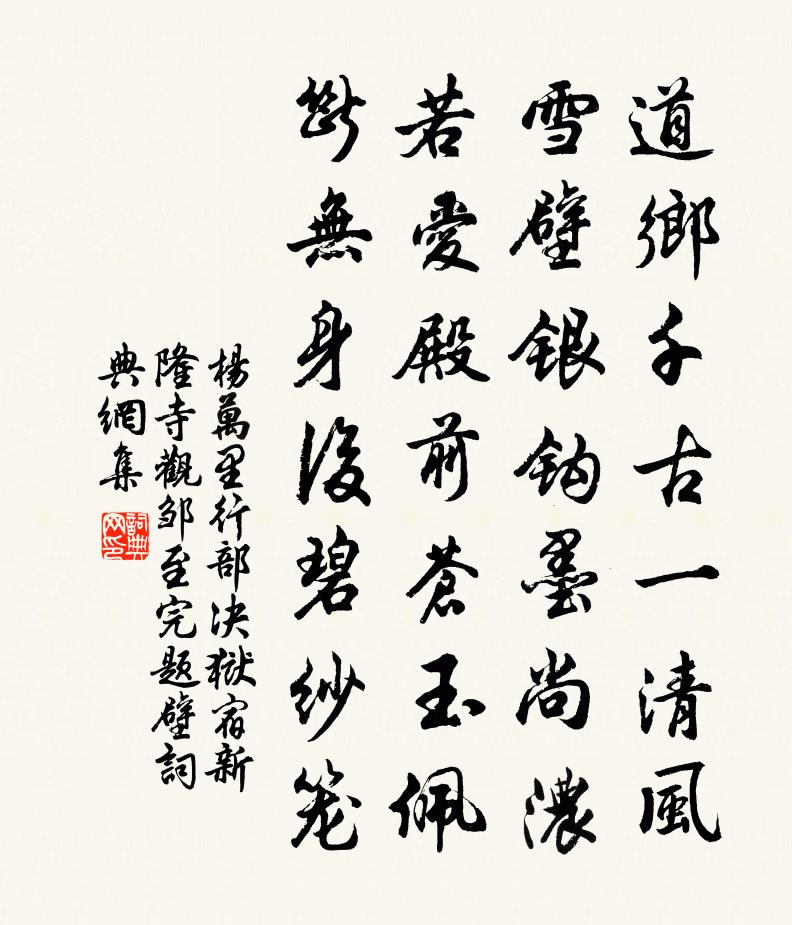 道鄉千古一清風
雪壁銀鈎墨尚濃
若愛殿前蒼玉佩
斷無身後碧紗笼
楊萬里行部决獄宿新
隆寺觀邹至完題壁詞
典網集
詞典
网印